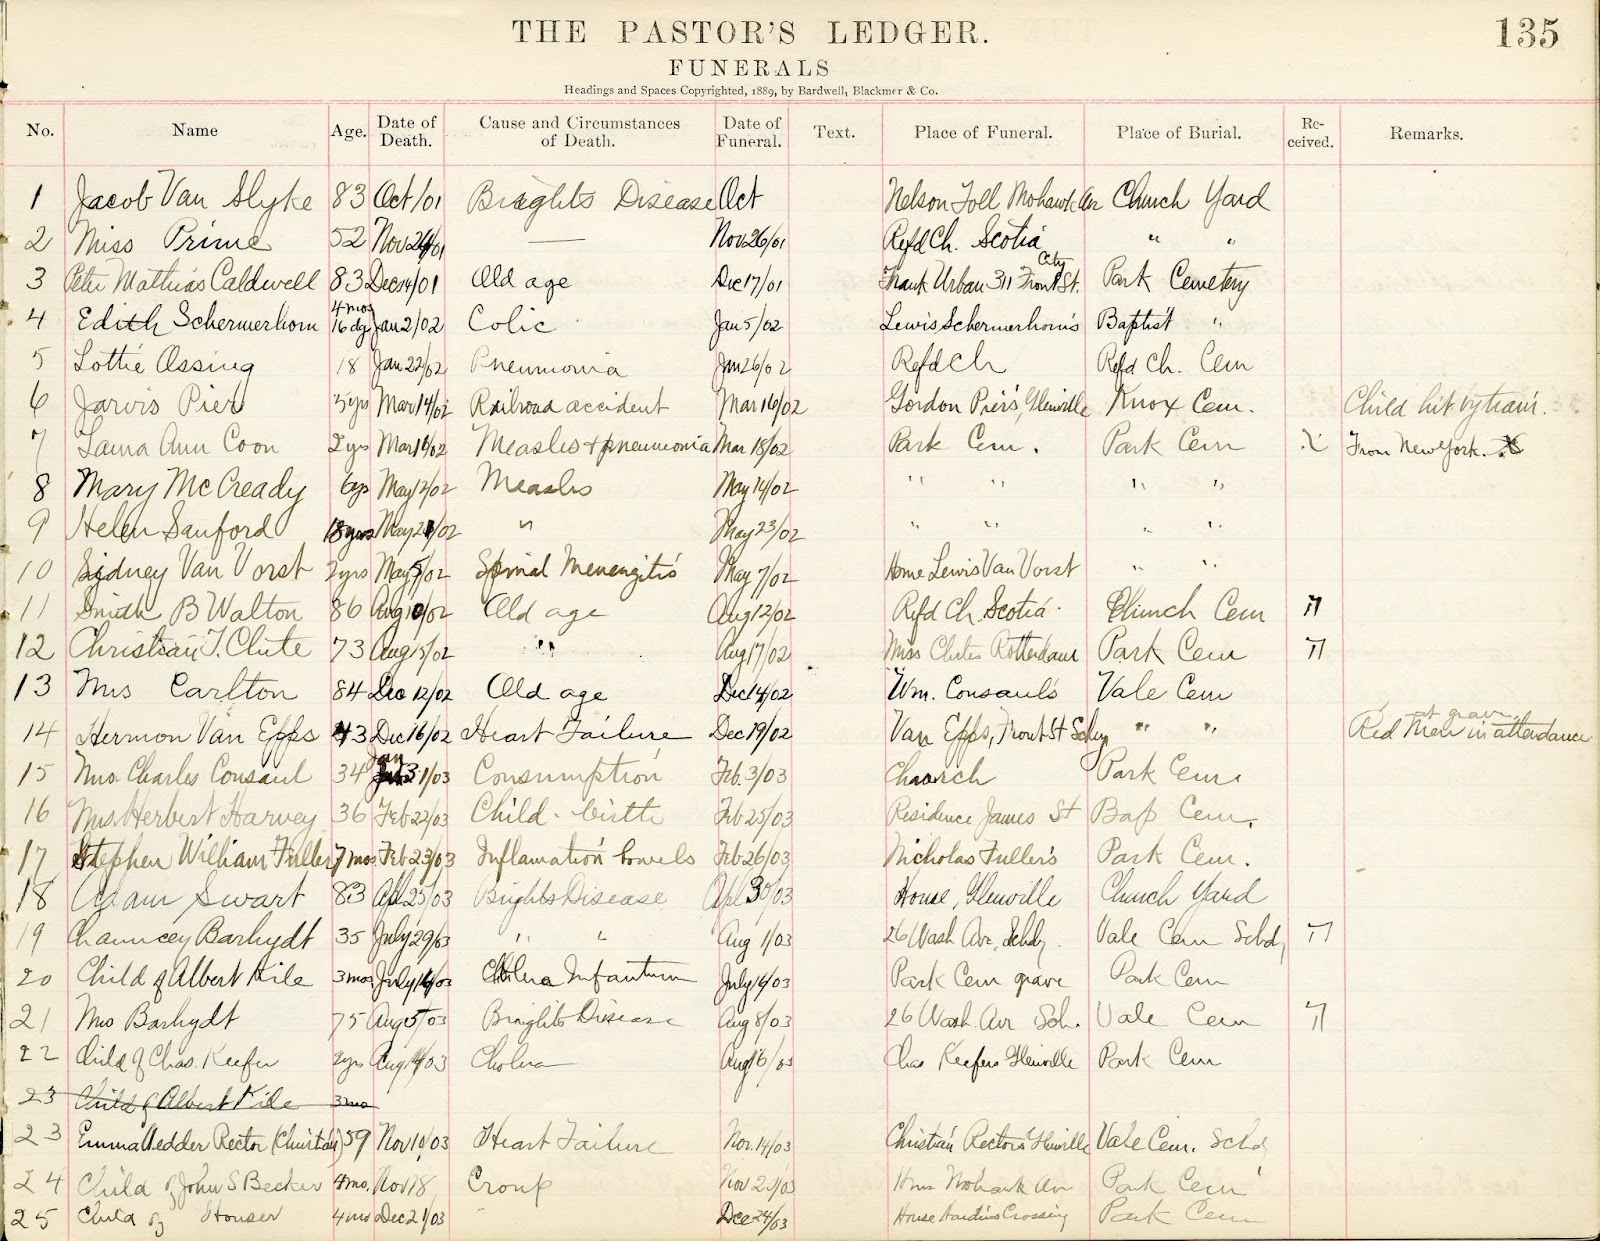 THE PASTOR'S LEDGER. 135
FUNERALS
Headings and Spaces Copyrighted, 1889, by Bardwell, Blackmer & Co.
No. Name Age. Date of Death. Cause and Circumstances of Death. Date of Funeral. Text. Place of Funeral. Place of Burial. Re-ceived. Remarks.
1 Jacob Van Slyke 83 Oct/01 Brights Disease Oct Nelson Toll Mohawk Av Church Yard
2 Miss Prime 52 Nov 24/01 — Nov 26/01 Refd Ch. Scotia " "
3 Peter Mathias Caldwell 83 Dec 14/01 Old age Dec 17/01 Frank Urban 311 Front St. City Park Cemetery
4 Edith Schermerhorn 4 mos 16 dys Jan 2/02 Colic Jan 5/02 Lewis Schermerhorn's Baptist "
5 Lottie Ossing 18 Jan 22/02 Pneumonia Jan 26/02 Refd Ch Refd Ch. Cem
6 Jarvis Pier 3 yrs Mar 14/02 Railroad accident Mar 16/02 Gordon Pier's, Glenville Knox Cem. Child hit by train.
7 Laura Ann Coon 2 yrs Mar 16/02 Measles & pneumonia Mar 18/02 Park Cem. Park Cem X From New York. X
8 Mary McCready 6 ys May 12/02 Measles May 14/02 " " " "
9 Helen Sanford 18 yrs May 21/02 " May 23/02 " " " "
10 Sidney Van Vorst 2 yrs May 5/02 Spinal Menengitis May 7/02 Home Lewis Van Vorst " "
11 Smith B Walton 86 Aug 10/02 Old age Aug 12/02 Refd Ch. Scotia Church Cem
12 Christian T. Clute 73 Aug 15/02 " " Aug 17/02 Miss Clutes Rotterdam Park Cem
13 Mrs Carlton 84 Dec 12/02 Old age Dec 14/02 Wm. Consaul's Vale Cem
14 Hermon Van Epps 43 Dec 16/02 Heart Failure Dec 19/02 Van Epps, Front St Schdy " " Red Men at grave in attendance
15 Mrs. Charles Consaul 34 Jan 31/03 Consumption Feb. 3/03 Church Park Cem.
16 Mrs. Herbert Harvey 36 Feb 22/03 Child-birth Feb 25/03 Residence James St Bap Cem.
17 Stephen William Fuller 7 mos Feb 23/03 Inflamation bowels Feb 26/03 Nicholas Fuller's Park Cem.
18 Adam Swart 83 Apl 25/03 Brights Disease Apl 30/03 House, Glenville Church Yard
19 Chauncey Barhydt 35 July 29/03 " " Aug 1/03 26 Wash Av, Schdy. Vale Cem Schdy
20 Child of Albert Kile 3 mos July 14/03 Cholera Infantum July 16/03 Park Cem grave Park Cem
21 Mrs Barhydt 75 Aug 5/03 Brights Disease Aug 8/03 26 Wash. Av Sch. Vale Cem
22 Child of Chas. Keefer 2 yrs Aug 14/03 Cholera Aug 16/03 Chas Keefers Glenville Park Cem
23 Child of Albert Kile 3 mo
23 Emma Vedder Rector (Christian) 59 Nov 10/03 Heart Failure Nov. 14/03 Christian Rectors Glenville Vale Cem. Schdy
24 Child of John S Becker 4 mo. Nov 18 Croup Nov 20/03 Mohawk Av Park Cem
25 Child of Houser 4 mo Dec 21/03 Dec 24/03 House Hardins Crossing Park Cem